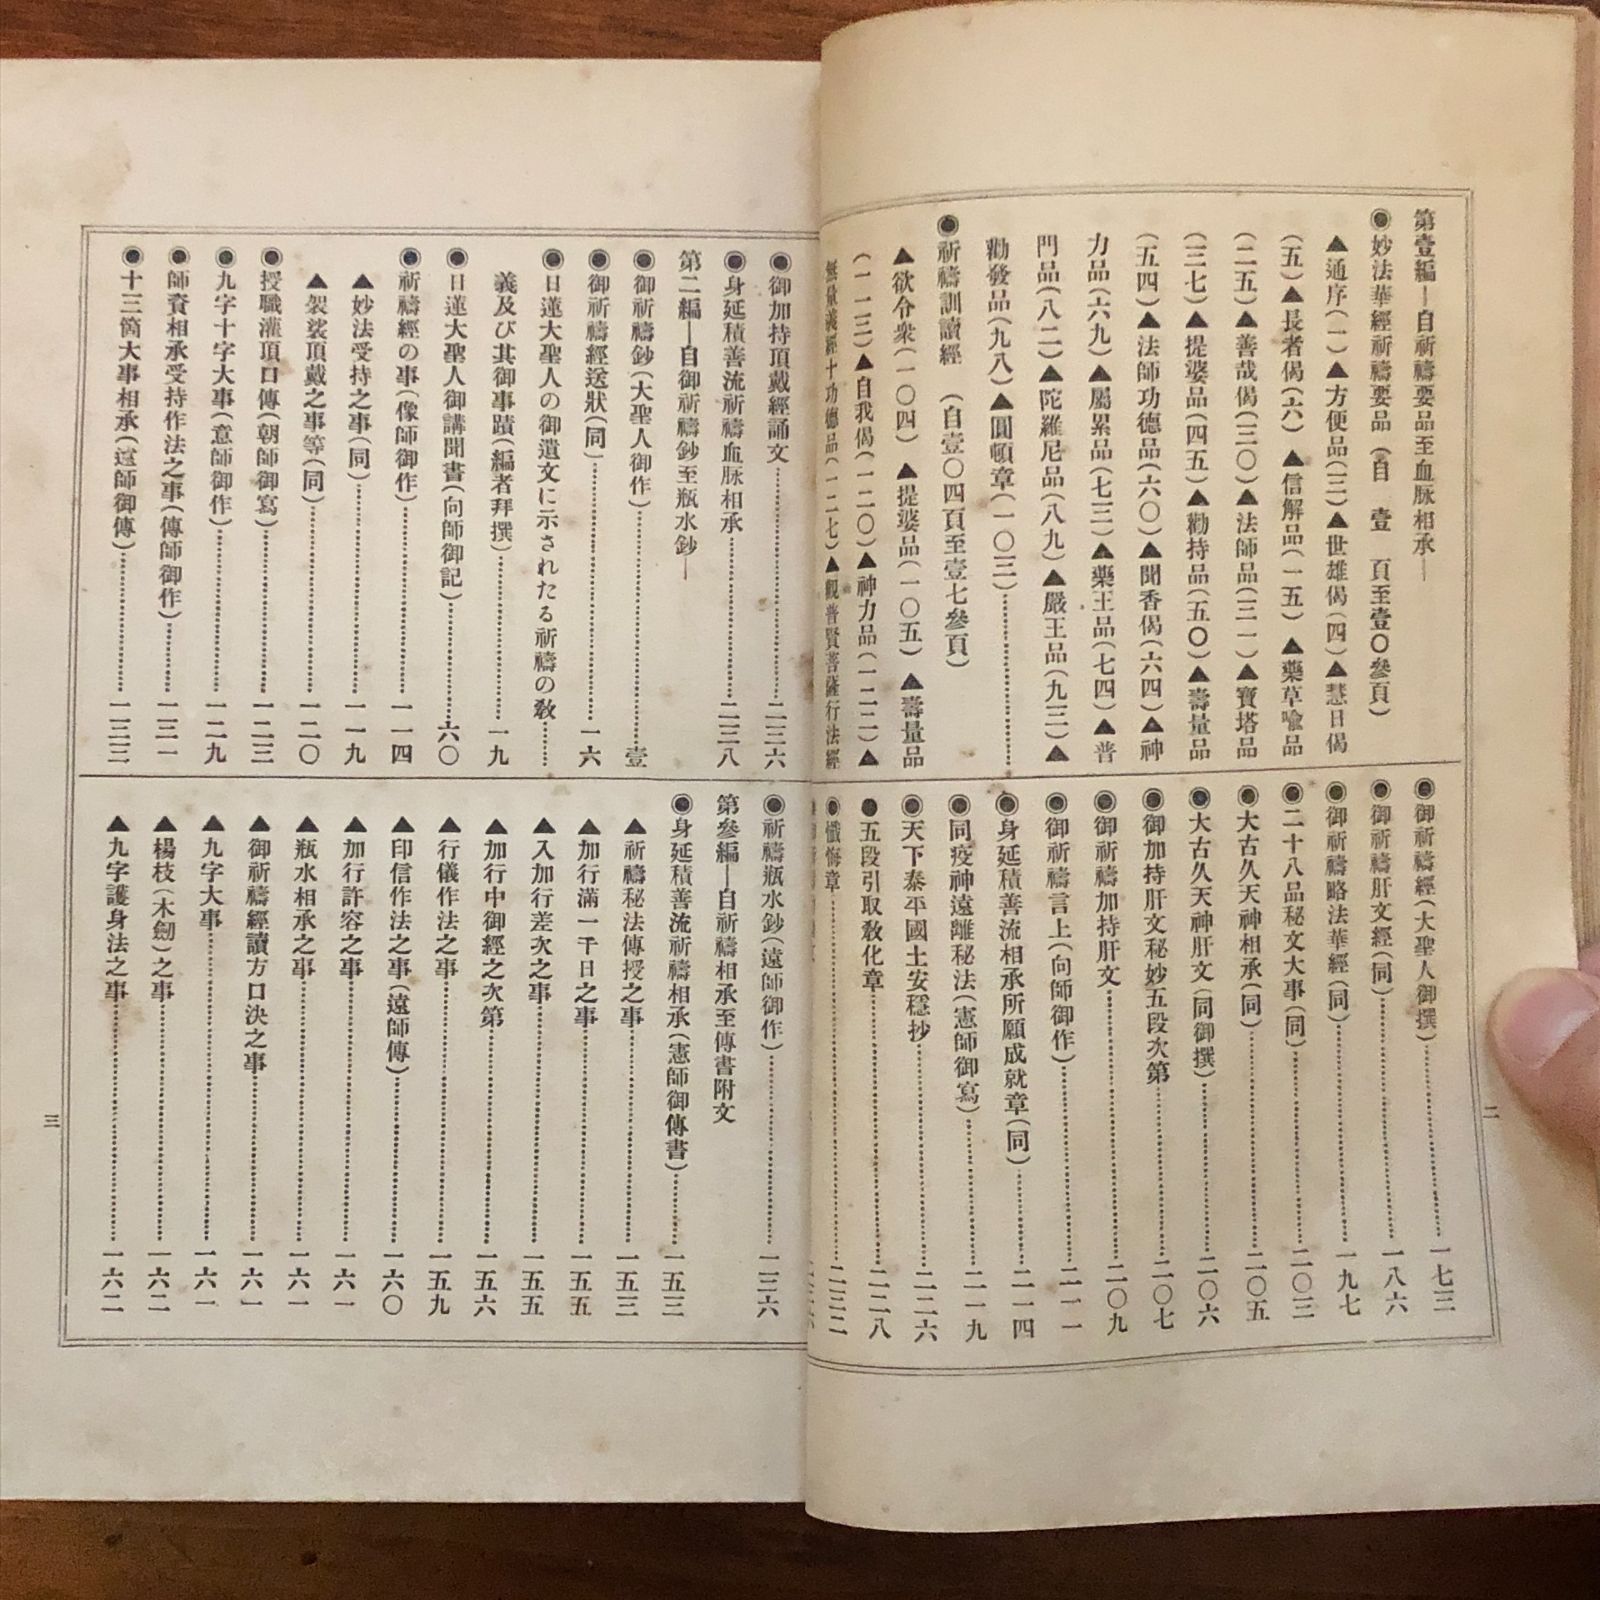 第壹編―自祈禱要品至血脉相承―
◉妙法華經祈禱要品(自 壹 頁至壹〇參頁)
▲通序(一)▲方便品(三)▲世雄偈(四)▲慧日偈
(五)▲長者偈(六)▲信解品(一五)▲藥草喩品
(二五)▲善哉偈(三〇)▲法師品(三一)▲寶塔品
(三七)▲提婆品(四五)▲勸持品(五〇)▲壽量品
(五四)▲法師功德品(六〇)▲聞香偈(六四)▲神
力品(六九)▲屬累品(七三)▲藥王品(七四)▲普
門品(八二)▲陀羅尼品(八九)▲嚴王品(九三)▲
勸發品(九八)▲圓頓章(一〇三)…………
◉祈禱訓讀經 (自壹〇四頁至壹七參頁)
▲欲令衆(一〇四)▲提婆品(一〇五)▲壽量品
(一一三)▲自我偈(一二〇)▲神力品(一二二)▲
無量義經十功德品(一二七)▲觀普賢菩薩行法經
◉御祈禱經(大聖人御撰)…………一七三
◉御祈禱肝文經(同)…………一八六
◉御祈禱略法華經(同)…………一九七
◉二十八品秘文大事(同)…………二〇三
◉大古久天神相承(同)…………二〇五
◉大古久天神肝文(同御撰)…………二〇六
◉御加持肝文秘妙五段次第…………二〇七
◉御祈禱加持肝文…………二〇九
◉御祈禱言上(向師御作)…………二一一
◉身延積善流相承所願成就章(同)…………二一四
◉同疫神遠離秘法(憲師御寫)…………二一九
◉天下泰平國土安穩抄…………二二六
◉五段引取敎化章…………二二八
◉懺悔章…………二三二
二
◉御加持頂戴經誦文…………二三六
◉身延積善流祈禱血脉相承…………二三八
第二編―自御祈禱鈔至瓶水鈔―
◉御祈禱鈔(大聖人御作)…………壹
◉御祈禱經送狀(同)…………一六
◉日蓮大聖人の御遺文に示されたる祈禱の敎……
義及び其御事蹟(編者拜撰)…………一九
◉日蓮大聖人御講聞書(向師御記)…………六〇
◉祈禱經の事(像師御作)…………一一四
▲妙法受持之事(同)…………一一九
▲袈裟頂戴之事等(同)…………一二〇
◉授職灌頂口傳(朝師御寫)…………一二三
◉九字十字大事(意師御作)…………一二九
◉師資相承受持作法之事(傳師御作)…………一三一
◉十三箇大事相承(遠師御傳)…………一三三
◉祈禱瓶水鈔(遠師御作)…………一三六
第參編―自祈禱相承至傳書附文
◉身延積善流祈禱相承(憲師御傳書)…………一五三
▲祈禱秘法傳授之事…………一五三
▲加行滿一千日之事…………一五五
▲入加行差次之事…………一五五
▲加行中御經之次第…………一五六
▲行儀作法之事…………一五九
▲印信作法之事(遠師傳)…………一六〇
▲加行許容之事…………一六一
▲瓶水相承之事…………一六一
▲御祈禱經讀方口決之事…………一六一
▲九字大事…………一六一
▲楊枝(木劒)之事…………一六二
▲九字護身法之事…………一六二
三